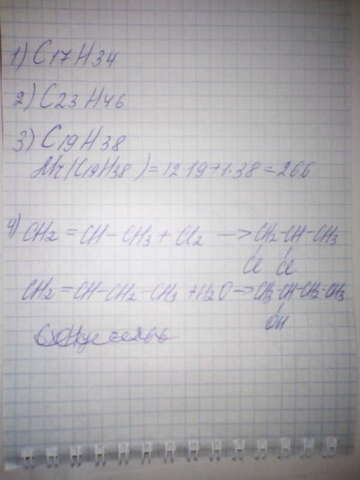 1) C17H34
2) C23H46
3) C19H38
Mr(C19H38) = 12·19+1·38 = 266
4) CH2=CH-CH3+Cl2 → CH2-CH-CH3
Cl Cl
CH2=CH-CH2-CH3+H2O → CH3-CH-CH2-CH3
OH